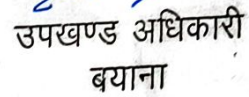 उपखण्ड अधिकारी
बयाना